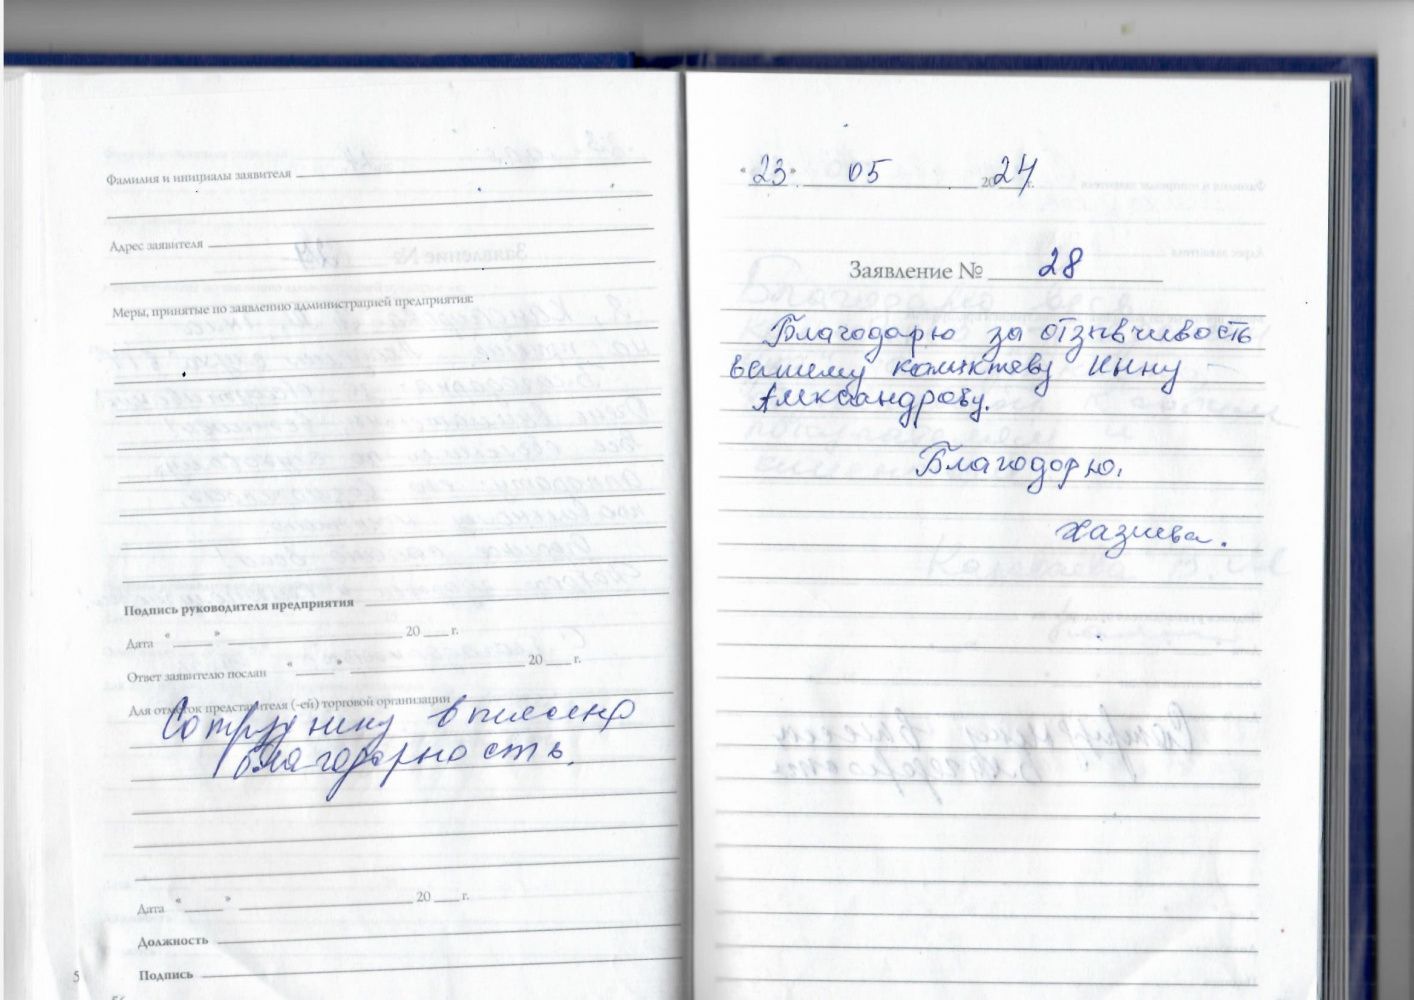 Фамилия и инициалы заявителя
Адрес заявителя
Меры, принятые по заявлению администрацией предприятия:
Подпись руководителя предприятия
Дата « » 20 г.
Ответ заявителю послан « » 20 г.
Для отметок представителя (-ей) торговой организации
Сотруднику вписана
благодарность.
Дата « » 20 г.
Должность
Подпись
5
56
«23» 05 2024 г.
Заявление № 28
Благодарю за отзывчивость
вашему Инну
Александрову.
Благодорю.
Хазиева.